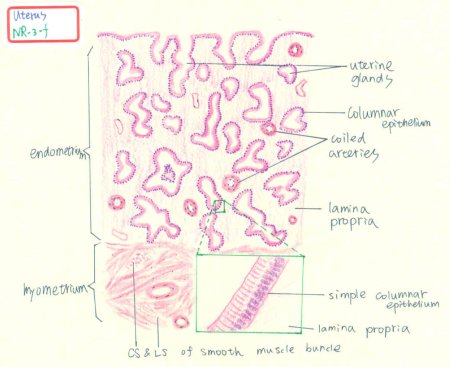 Uterus
NR-3-f
uterine
glands
Columnar
epithelium
coiled
arteries
endometrium
lamina
propria
myometrium
simple columnar
epithelium
lamina propria
CS & LS of smooth muscle bundle